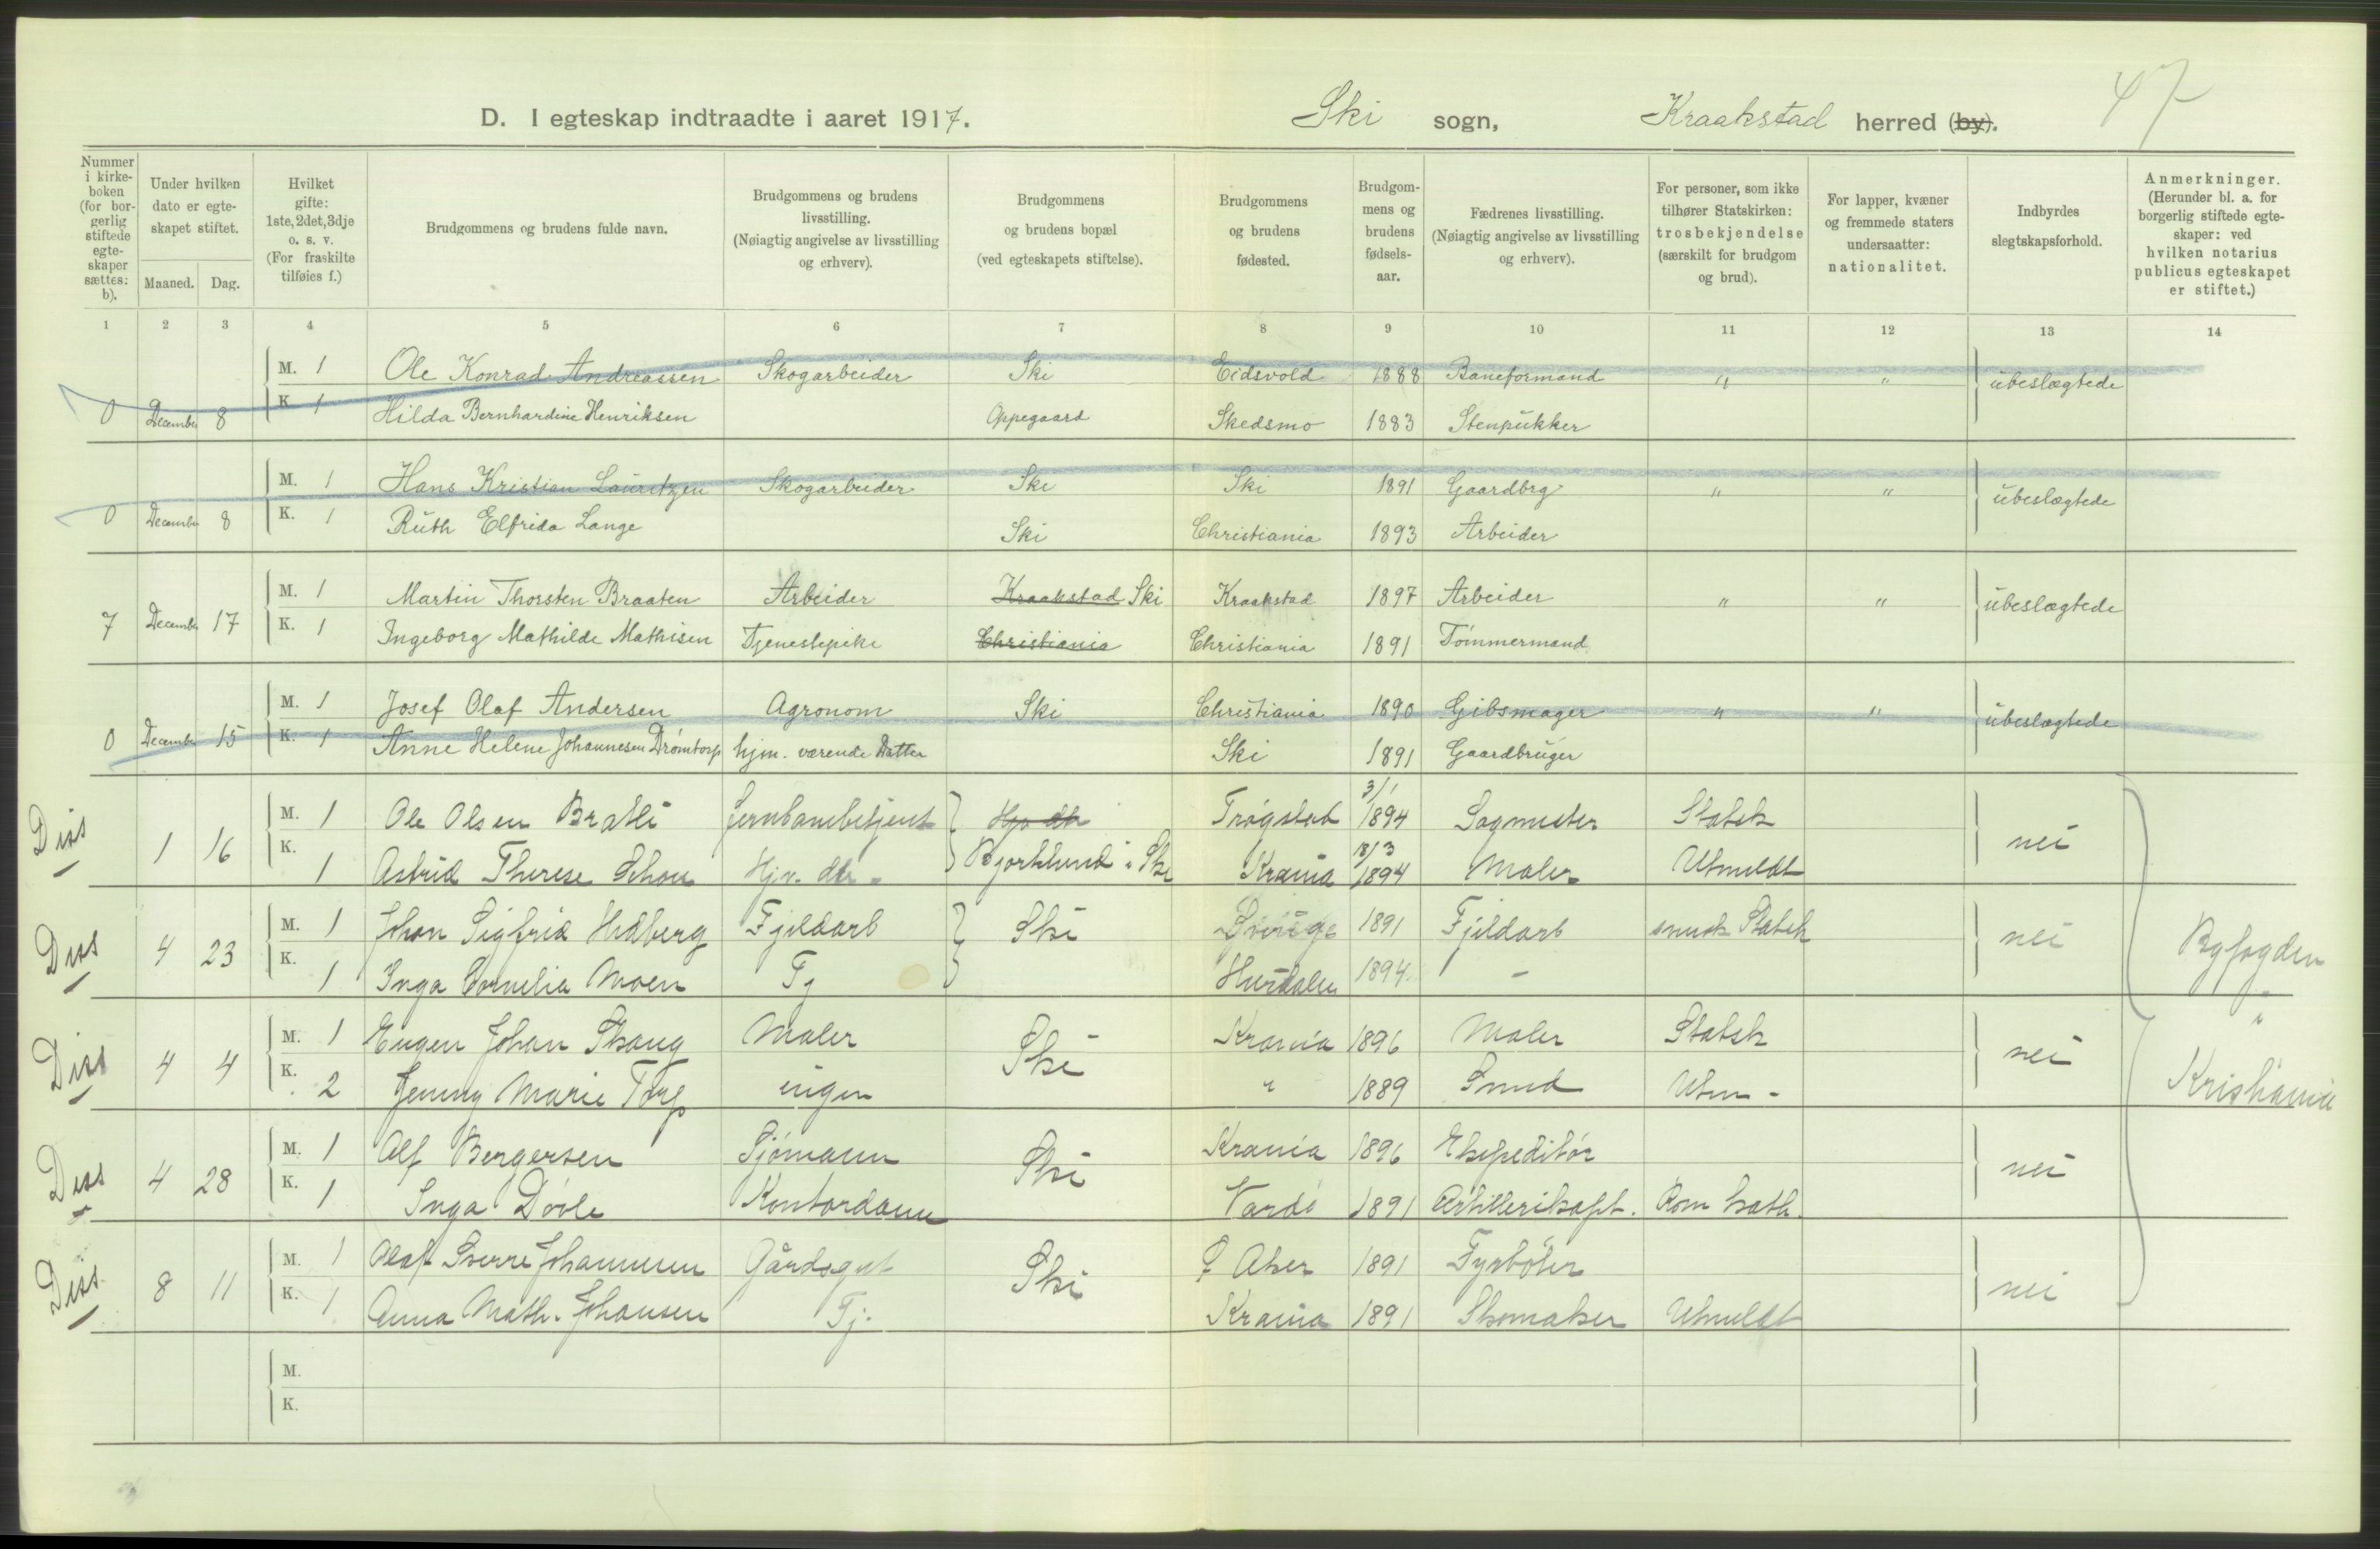 47
D. I egteskap indtraadte i aaret 1917. Ski sogn, Kraakstad herred (by).
Nummer i kirke-boken (for bor-gerlig stiftede egte-skaper sættes: b).
Under hvilken dato er egte-skapet stiftet.
Maaned. Dag.
Hvilket gifte: 1ste, 2det, 3dje o. s. v. (For fraskilte tilføies f.)
Brudgommens og brudens fulde navn.
Brudgommens og brudens livsstilling. (Nøiagtig angivelse av livsstilling og erhverv).
Brudgommens og brudens bopæl (ved egteskapets stiftelse).
Brudgommens og brudens fødested.
Brudgom-mens og brudens fødsels-aar.
Fædrenes livsstilling. (Nøiagtig angivelse av livsstilling og erhverv).
For personer, som ikke tilhører Statskirken: trosbekjendelse (særskilt for brudgom og brud).
For lapper, kvæner og fremmede staters undersaatter: nationalitet.
Indbyrdes slegtskapsforhold.
Anmerkninger. (Herunder bl. a. for borgerlig stiftede egte-skaper: ved hvilken notarius publicus egteskapet er stiftet.)
1 2 3 4 5 6 7 8 9 10 11 12 13 14
M. 1 Ole Konrad Andreassen Skogarbeider Ski Eidsvold 1888 Baneformand " " ubeslægtede
0 December 8 K. 1 Hilda Bernhardine Henriksen Oppegaard Skedsmo 1883 Stenpukker
M. 1 Hans Kristian Lauritzen Skogarbeider Ski Ski 1891 Gaardbrg " " ubeslægtede
0 December 8 K. 1 Ruth Elfrida Lange Ski Christiania 1893 Arbeider
M. 1 Martin Thorsten Braaten Arbeider Kraakstad Ski Kraakstad 1897 Arbeider " " ubeslægtede
7 December 17 K. 1 Ingeborg Mathilde Mathisen Tjenestepike Christiania Christiania 1891 Tömmermand
M. 1 Josef Olaf Andersen Agronom Ski Christiania 1890 Gibsmager " " ubeslægtede
0 December 15 K. 1 Anne Helene Johannesen Drømtorp hjm. værende Datter Ski 1891 Gaardbruger
Diss 1 16 M. 1 Ole Olsen Bratli Jernbanebetjent Trøgstad 3/1 1894 Sagmester Statsk nei
K. 1 Astrid Therese Schou Hjv. dtr. Bjorklund i Ski Krania 18/3 1894 Maler Utmeldt
Diss 4 23 M. 1 Johan Sigfrid Hedberg Fjeldarb Ski Sverige 1891 Fjeldarb svensk Statsk nei Byfogden
K. 1 Inga Cornelia Moen Tj Hurdalen 1894 -
Diss 4 4 M. 1 Eugen Johan Skaug Maler Ski Krania 1896 Maler Statsk nei "
K. 2 Jenny Marie Torp ingen " 1889 Smed Utm - Kristiania
Diss 4 28 M. 1 Alf Bergersen Sjømann Ski Krania 1896 Ekspeditør nei
K. 1 Inga Døvle Kontordame Vardö 1891 Artillerikapt. Rom kath.
Diss 8 11 M. 1 Olaf Sverre Johannesen Gårdsgut Ski Ø Aker 1891 Fyrbøter nei
K. 1 Anna Math. Johansen Tj. Krania 1891 Skomaker Utmeldt
M.
K.